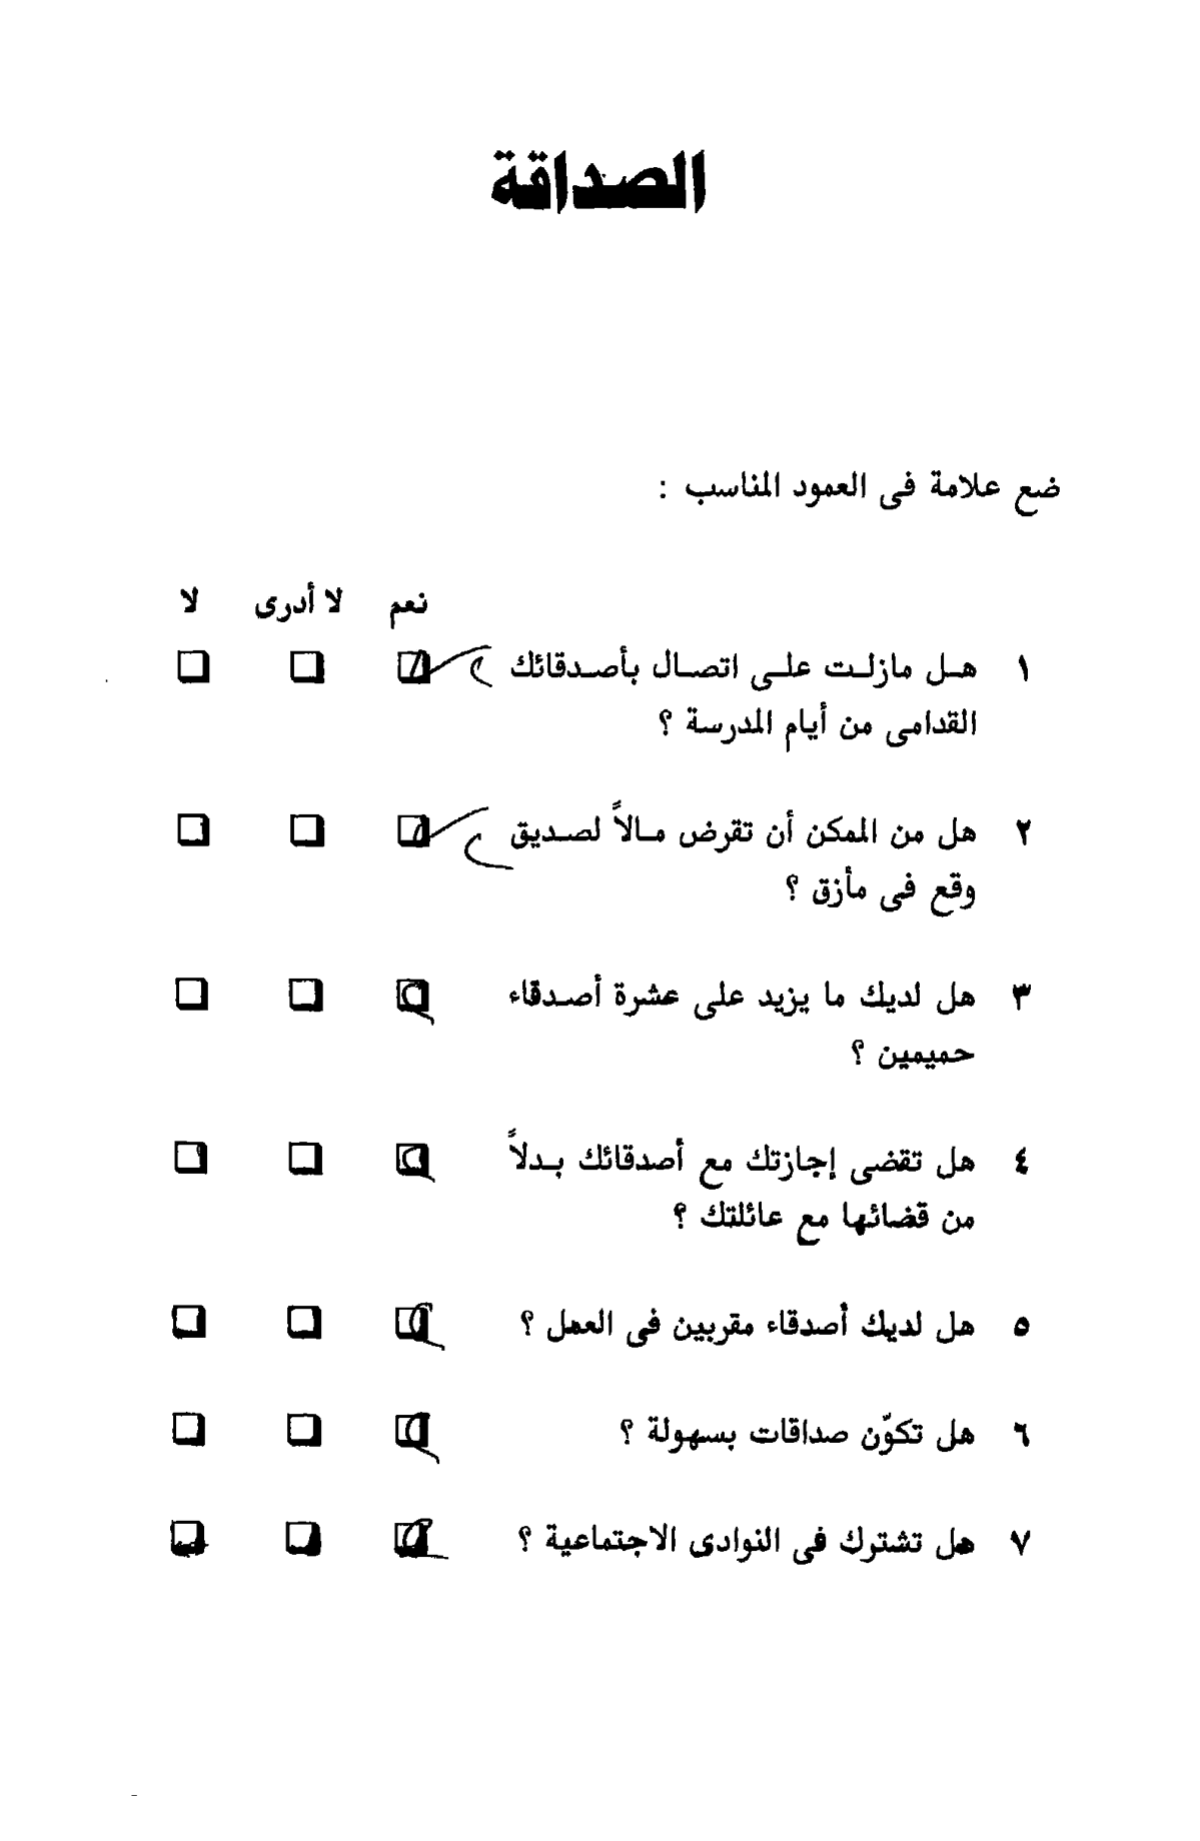 الصداقة
ضع علامة فى العمود المناسب :
نعم لا أدرى لا
١ هـل مازلـت علـى اتصـال بأصـدقائك
القدامى من أيام المدرسة ؟
٢ هل من الممكن أن تقرض مـالاً لصـديق
وقع فى مأزق ؟
٣ هل لديك ما يزيد على عشرة أصـدقاء
حميمين ؟
٤ هل تقضى إجازتك مع أصدقائك بـدلاً
من قضائها مع عائلتك ؟
٥ هل لديك أصدقاء مقربين فى العمل ؟
٦ هل تكوّن صداقات بسهولة ؟
٧ هل تشترك فى النوادى الاجتماعية ؟